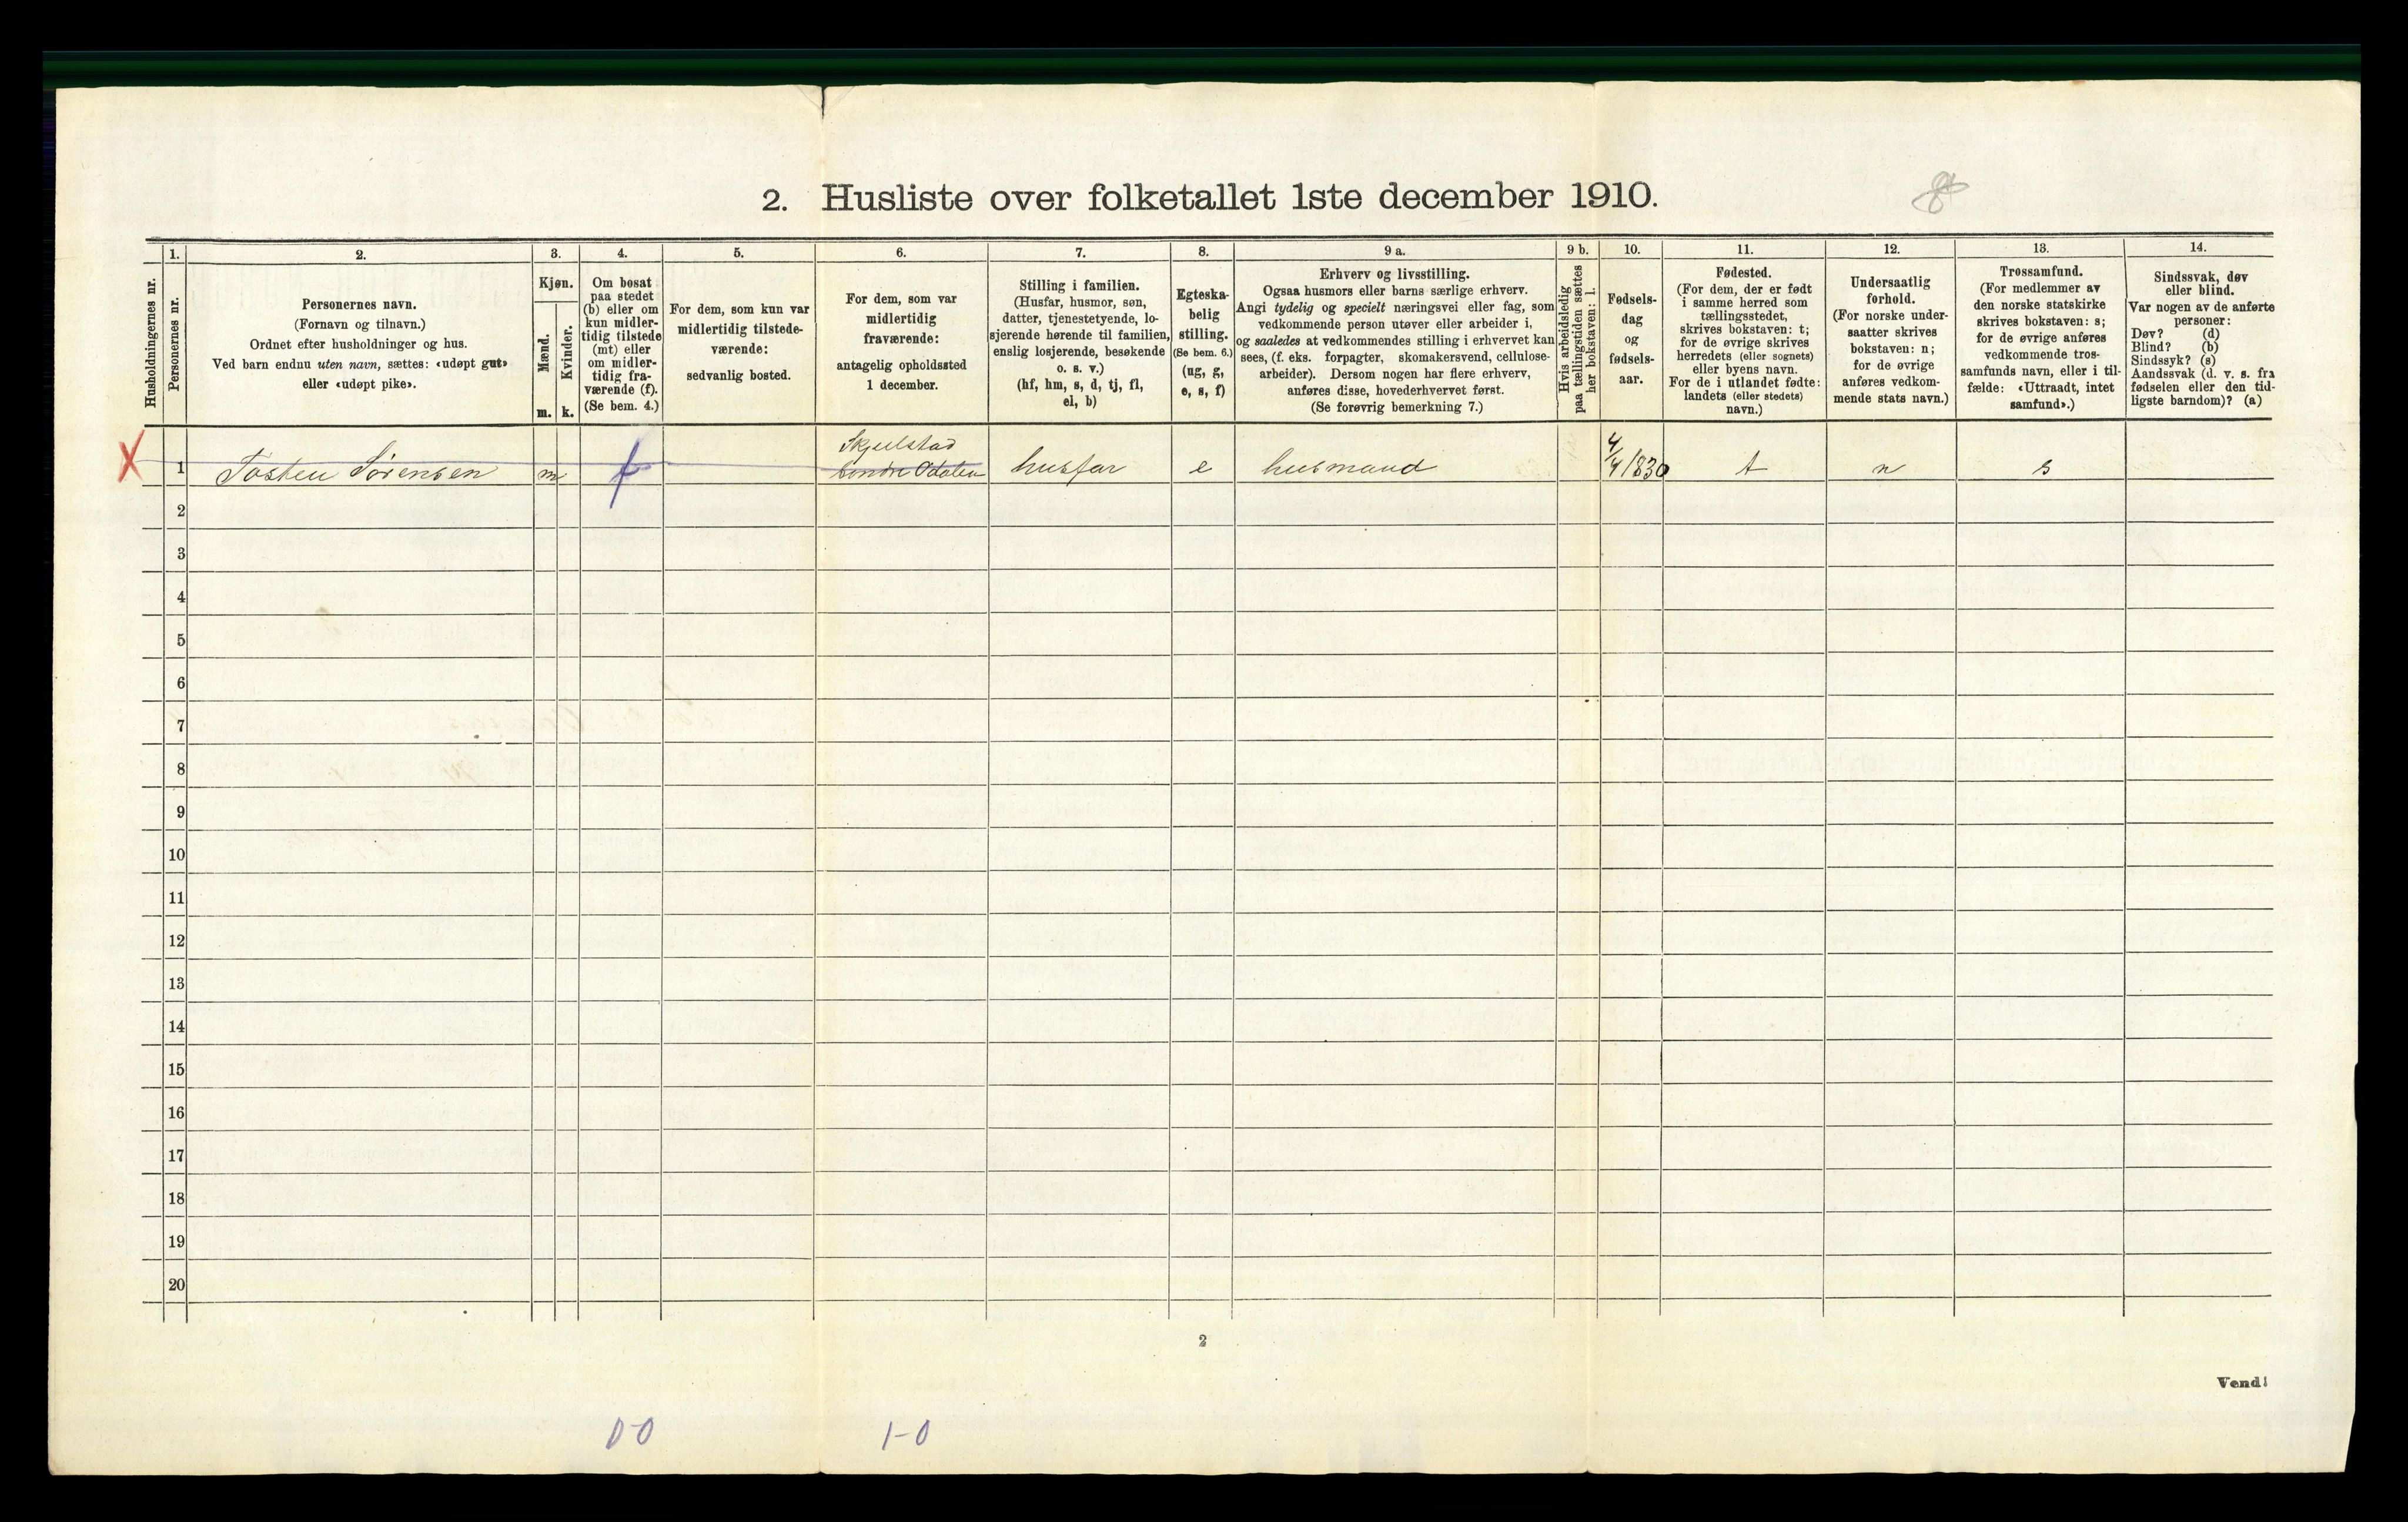 2. Husliste over folketallet 1ste december 1910.
8
Husholdningernes nr.
1.
Personernes nr.
2.
Personernes navn.
(Fornavn og tilnavn.)
Ordnet efter husholdninger og hus.
Ved barn endnu uten navn, sættes: «udøpt gut»
eller «udøpt pike».
3.
Kjøn.
Mænd.
Kvinder.
m. k.
4.
Om bosat
paa stedet
(b) eller om
kun midler-
tidig tilstede
(mt) eller
om midler-
tidig fra-
værende (f).
(Se bem. 4.)
5.
For dem, som kun var
midlertidig tilstede-
værende:
sedvanlig bosted.
6.
For dem, som var
midlertidig
fraværende:
antagelig opholdssted
1 december.
7.
Stilling i familien.
(Husfar, husmor, søn,
datter, tjenestetyende, lo-
sjerende hørende til familien,
enslig losjerende, besøkende
o. s. v.)
(hf, hm, s, d, tj, fl,
el, b)
8.
Egteska-
belig
stilling.
(Se bem. 6.)
(ug, g,
e, s, f)
9 a.
Erhverv og livsstilling.
Ogsaa husmors eller barns særlige erhverv.
Angi tydelig og specielt næringsvei eller fag, som
vedkommende person utøver eller arbeider i,
og saaledes at vedkommendes stilling i erhvervet kan
sees, (f. eks. forpagter, skomakersvend, cellulose-
arbeider). Dersom nogen har flere erhverv,
anføres disse, hovederhvervet først.
(Se forøvrig bemerkning 7.)
9 b.
Hvis arbeidsledig
paa tællingstiden sættes
her bokstaven: l.
10.
Fødsels-
dag
og
fødsels-
aar.
11.
Fødested.
(For dem, der er født
i samme herred som
tællingsstedet,
skrives bokstaven: t;
for de øvrige skrives
herredets (eller sognets)
eller byens navn.
For de i utlandet fødte:
landets (eller stedets)
navn.)
12.
Undersaatlig
forhold.
(For norske under-
saatter skrives
bokstaven: n;
for de øvrige
anføres vedkom-
mende stats navn.)
13.
Trossamfund.
(For medlemmer av
den norske statskirke
skrives bokstaven: s;
for de øvrige anføres
vedkommende tros-
samfunds navn, eller i til-
fælde: «Uttraadt, intet
samfund».)
14.
Sindssvak, døv
eller blind.
Var nogen av de anførte
personer:
Døv? (d)
Blind? (b)
Sindssyk? (s)
Aandssvak (d. v. s. fra
fødselen eller den tid-
ligste barndom)? (a)
Skjelstad
X 1 Tosten Sørensen m f Søndre Odalen husfar e husmand 4/4 1830 t n s
2
3
4
5
6
7
8
9
10
11
12
13
14
15
16
17
18
19
20
2
Vend!
0-0 1-0